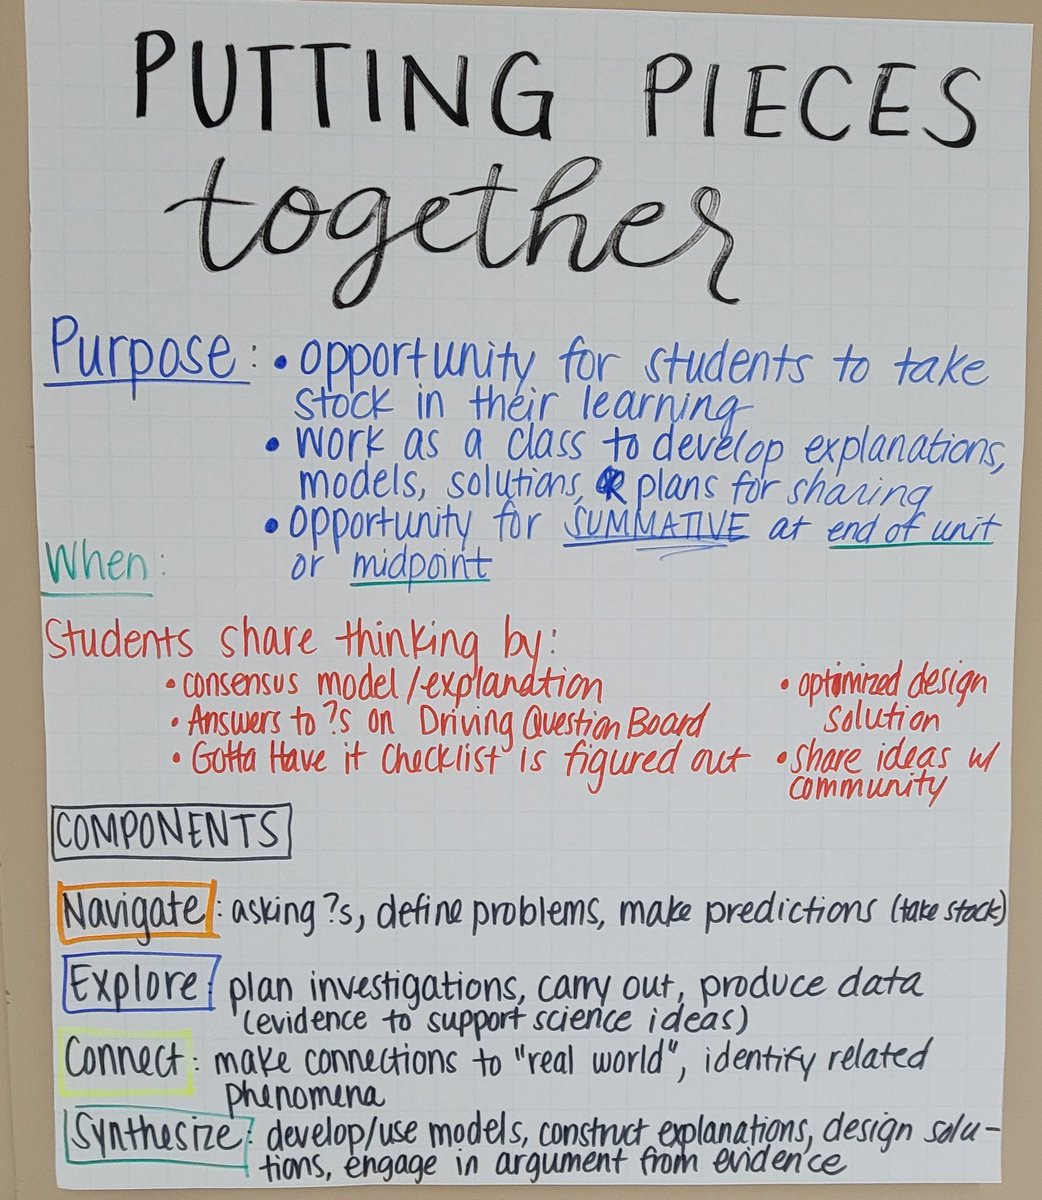 PUTTING PIECES
together
Purpose: • opportunity for students to take
stock in their learning
• work as a class to develop explanations,
models, solutions, OR plans for sharing
• opportunity for SUMMATIVE at end of unit
or midpoint
When:
Students share thinking by:
• consensus model/explanation
• Answers to ?s on Driving Question Board
• Gotta Have it Checklist is figured out
• optimized design
solution
• share ideas w/
community
COMPONENTS
Navigate: asking ?s, define problems, make predictions (take stock)
Explore: plan investigations, carry out, produce data
(evidence to support science ideas)
Connect: make connections to "real world", identify related
phenomena
Synthesize: develop/use models, construct explanations, design solu-
tions, engage in argument from evidence